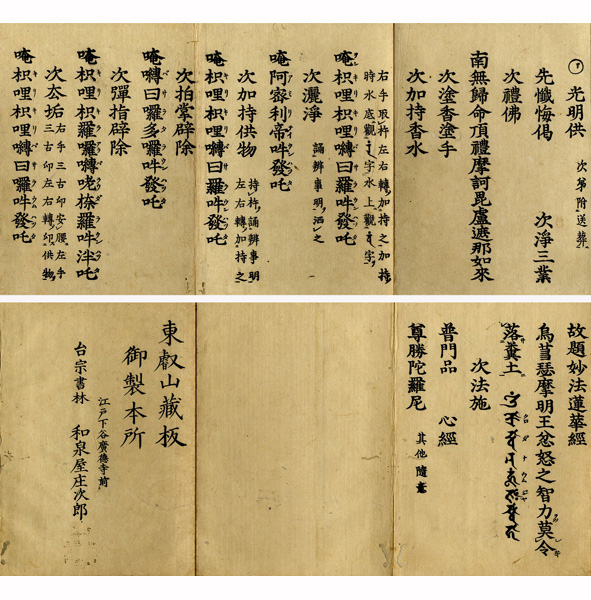 光明供 次第附送葬
先懺悔偈 次淨三業
次禮佛
南無歸命頂禮摩訶毘盧遮那如來
次塗香塗手
次加持香水
右手取杵左右轉加持之加持
時水底觀 字水上觀 字
唵枳哩枳哩嚩日羅吽發吒
次灑淨 誦辨事明洒之
唵阿密利帝吽發吒
次加持供物 持杵誦辨事明
左右轉加持之
唵枳哩枳哩嚩日羅吽發吒
次拍掌辟除
唵嚩日囉多羅吽發吒
次彈指辟除
唵枳哩枳羅囉嚩咾捺羅吽泮吒
次去垢 右手三古印安腰左手
三古印左右轉印供物
唵枳哩枳哩嚩日囉吽發吒
故題妙法蓮華經
烏芻瑟摩明王忿怒之智力莫令
落糞土
次法施
普門品 心經
尊勝陀羅尼 其他隨意
東叡山藏板
御製本所
江戸下谷廣德寺前
台宗書林 和泉屋庄次郎